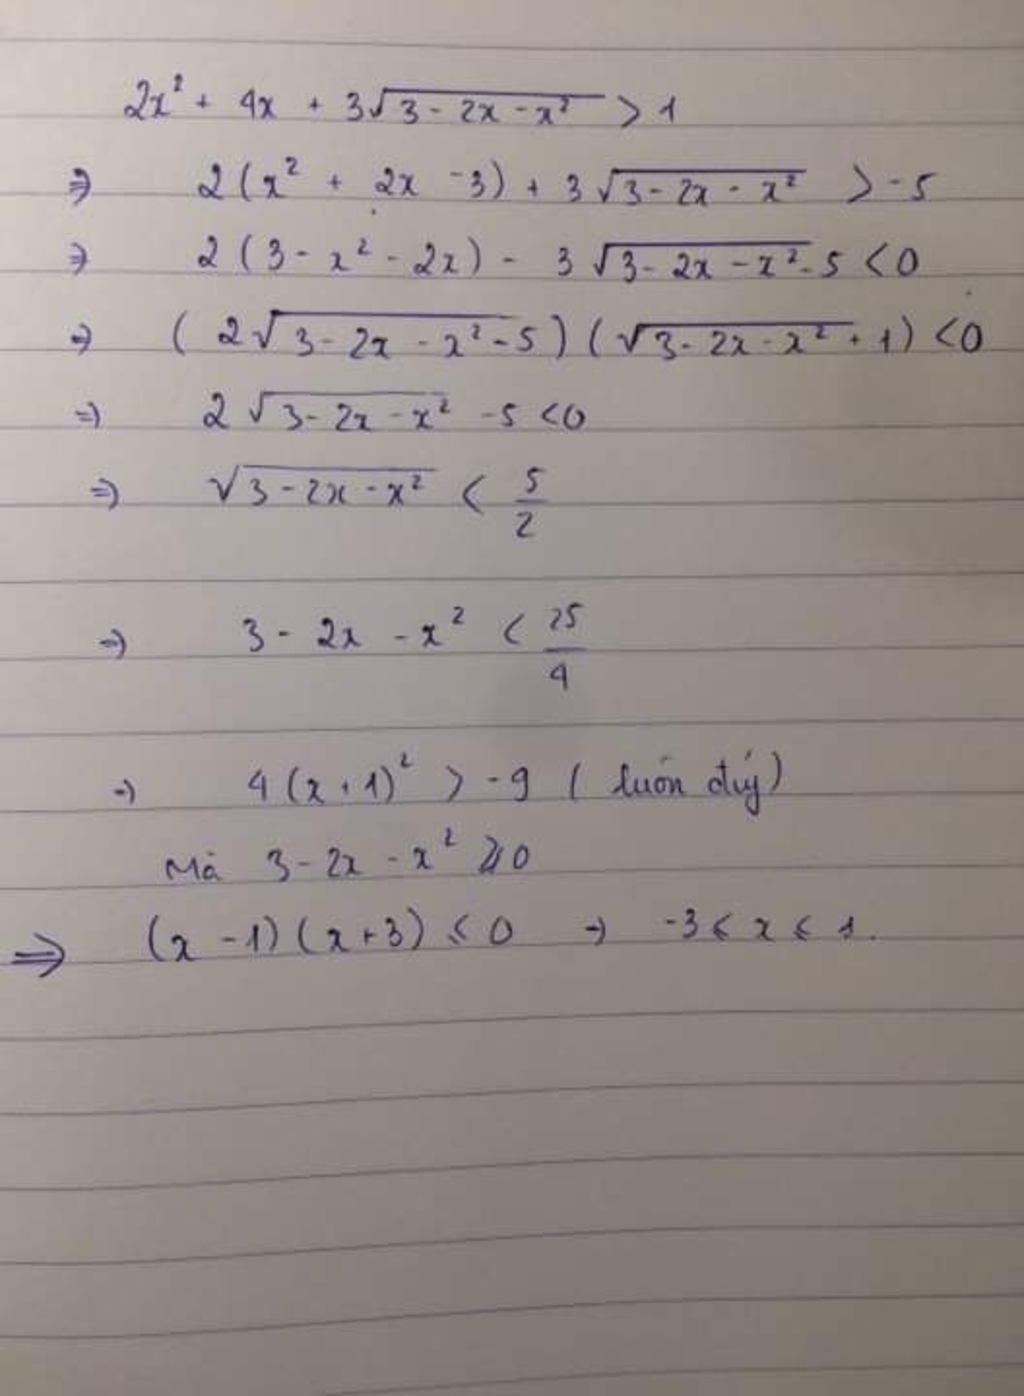 2x² + 4x + 3√(3 - 2x - x²) > 1
⇒ 2(x² + 2x - 3) + 3√(3 - 2x - x²) > -5
⇒ 2(3 - x² - 2x) - 3√(3 - 2x - x²) - 5 < 0
⇒ (2√(3 - 2x - x²) - 5)(√(3 - 2x - x²) + 1) < 0
⇒ 2√(3 - 2x - x²) - 5 < 0
⇒ √(3 - 2x - x²) < 5/2
⇒ 3 - 2x - x² < 25/4
⇒ 4(x + 1)² > -9 (luôn đúng)
Mà 3 - 2x - x² ≥ 0
⇒ (x - 1)(x + 3) ≤ 0 → -3 ≤ x ≤ 1.